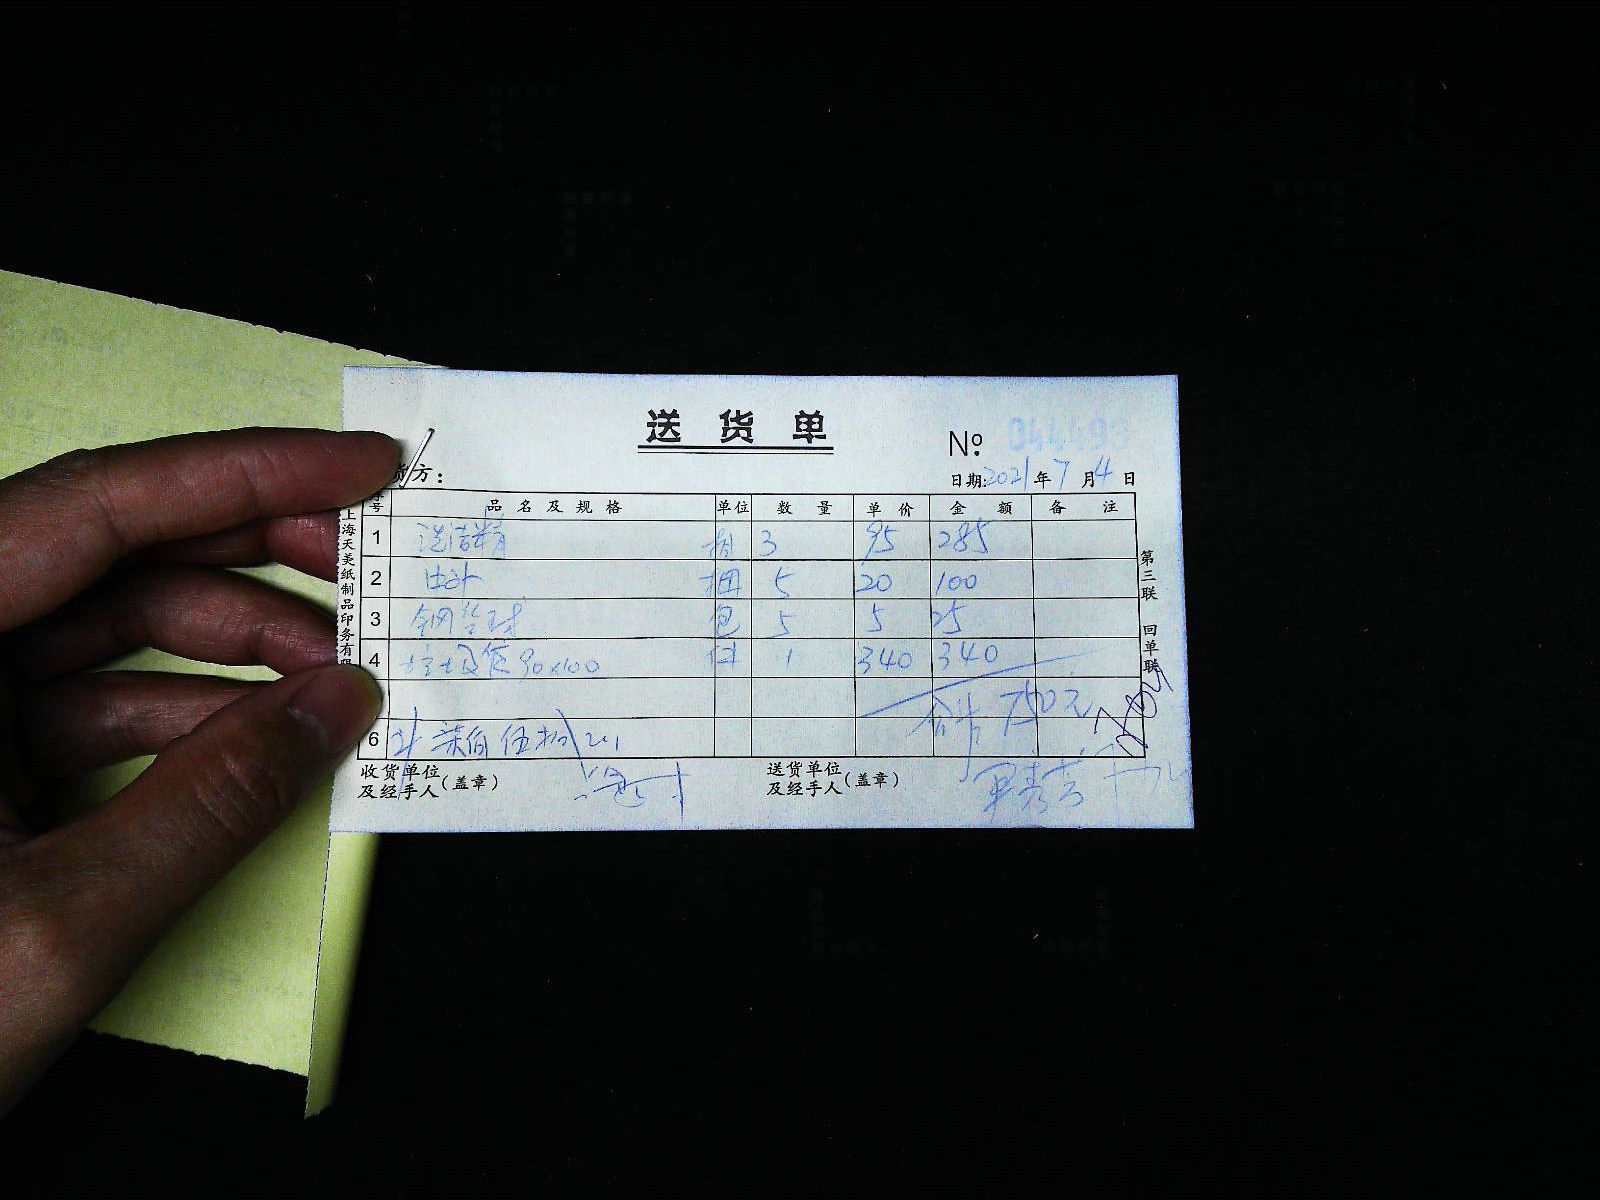 送 货 单
№: 044493
货方： 日期: 2021 年 7 月 4 日
号 品 名 及 规 格 单位 数 量 单 价 金 额 备 注
1 洗洁精 3 95 285
2 捆 5 20 100
3 钢丝球 包 5 5 25
4 垃圾袋 90×100 件 1 340 340
合计 750元
6 柒佰伍拾
收货单位 及经手人（盖章）
送货单位 及经手人（盖章）
上海天美纸制品印务有限
第三联 回单联